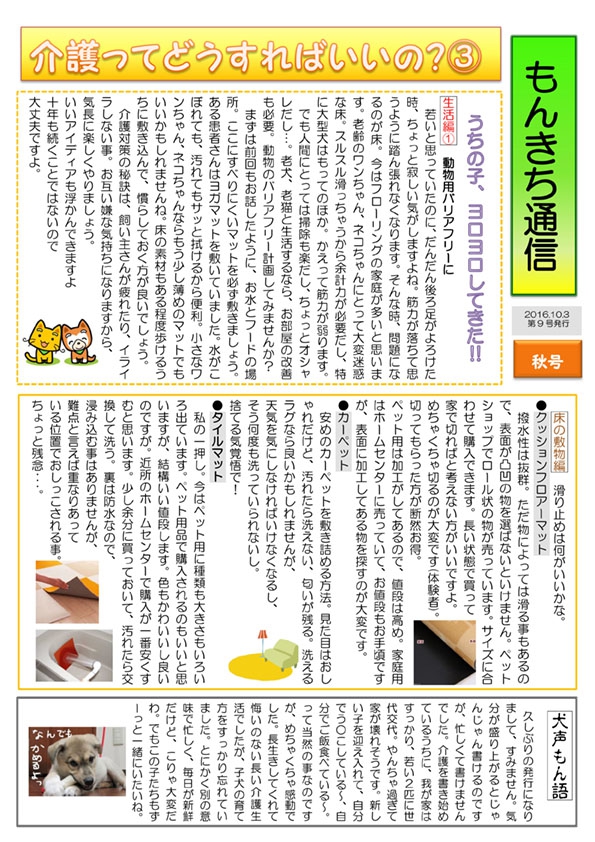 介護ってどうすればいいの?③
もんきち通信
2016.10.3
第9号発行
秋号
うちの子、ヨロヨロしてきだ!!
生活編① 動物用バリアフリーに
若いと思っていたのに、だんだん後ろ足がよろけた
時、ちょっと寂しい気がしますよね。筋力が落ちて思
うように踏ん張れなくなります。そんな時、問題にな
るのが床。今はフローリングの家庭が多いと思いま
す。老齢のワンちゃん、ネコちゃんにとって大変迷惑
な床。スルスル滑っちゃうから余計力が必要だし、特
に大型犬はもってのほか。かえって筋力が弱ります。
でも人間にとっては掃除も楽だし、ちょっとオシャ
レだし…老犬、老猫と生活するなら、お部屋の改善
も必要。動物のバリアフリー計画してみませんか?
まずは前回もお話したように、お水とフードの場
所。ここにすべりにくいマットを必ず敷きましょう。
ある患者さんはヨガマットを敷いていました。水がこ
ぼれても、汚れてもサッと拭けるから便利。小さなワ
ンちゃん、ネコちゃんならもう少し薄めのマットでも
いいかもしれませんね。床の素材もある程度歩けるう
ちに敷き込んで、慣らしておく方が良いでしょう。
介護対策の秘訣は、飼い主さんが疲れたり、イライ
ラしない事。お互い嫌な気持ちになりますから、
気長に楽しくやりましょう。
いいアイディアも浮かんできますよ
十年も続くことではないので
大丈夫ですよ。
床の敷物編 滑り止めは何がいいかな。
●クッションフロアーマット
撥水性は抜群。ただ物によっては滑る事もあるの
で、表面が凸凹の物を選ばないといけません。ペット
ショップでロール状の物が売っています。サイズに合
わせて購入できます。長い状態で買って
家で切ればと考えない方がいいですよ。
めちゃくちゃ切るのが大変です(体験者)。
切ってもらった方が断然お得。
ペット用は加工がしてあるので、値段は高め。家庭用
はホームセンターに売っていて、お値段もお手頃です
が、表面に加工してある物を探すのが大変です。
●カーペット
安めのカーペットを敷き詰める方法。見た目はおし
ゃれだけど、汚れたら洗えない、匂いが残る。洗える
ラグなら良いかもしれませんが、
天気を気にしなければいけなくなるし、
そう何度も洗っていられないし。
捨てる気覚悟で!
●タイルマット
私の一押し。今はペット用に種類も大きさもいろい
ろ出ています。ペット用品で購入されるのもいいと思
いますが、結構いい値段します。色もかわいいし良い
のですが。近所のホームセンターで購入が一番安くす
むと思います。少し余分に買っておいて、汚れたら交
換して洗う。裏は防水なので、
浸み込む事はありませんが、
難点と言えば重なりあって
いる位置でおしっこされる事。
ちょっと残念・・。
犬声もん語
久しぶりの発行になり
まして、すみません。気
分が盛り上がるとじゃ
んじゃん書けるのです
が、忙しくて書けません
でした。介護を書き始め
ているうちに、我が家は
すっかり、若い2匹に世
代交代。やんちゃ過ぎて
家が壊れそうです。新し
い子を迎え入れて、自分
で〇〇にしている〜、自
分でご飯食べている〜。
って当然の事なのです
が、めちゃくちゃ感動で
した。長生きしてくれて
悔いのない長い介護生
活でしたが、子犬の育て
方をすっかり忘れてい
ました。とにかく別の意
味で忙しく、毎日が新鮮
だけど、こりゃ大変だ
わ。でもこの子たちもず
ーっと一緒にいたいね。
なんでも
かめるよっ